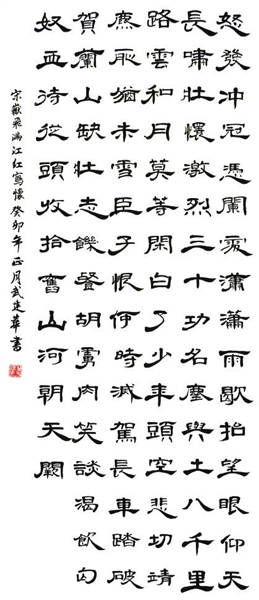 怒髮沖冠憑闌處瀟瀟雨歇抬望眼仰天
長嘯壯懷激烈三十功名塵與土八千里
路雲和月莫等閑白了少年頭空悲切靖
康恥猶未雪臣子恨何時滅駕長車踏破
賀蘭山缺壯志饑餐胡虜肉笑談渴飲匈
奴血待從頭收拾舊山河朝天闕
宋嶽飛滿江紅寫懷癸卯年正月武建華書